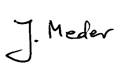 J. Meder